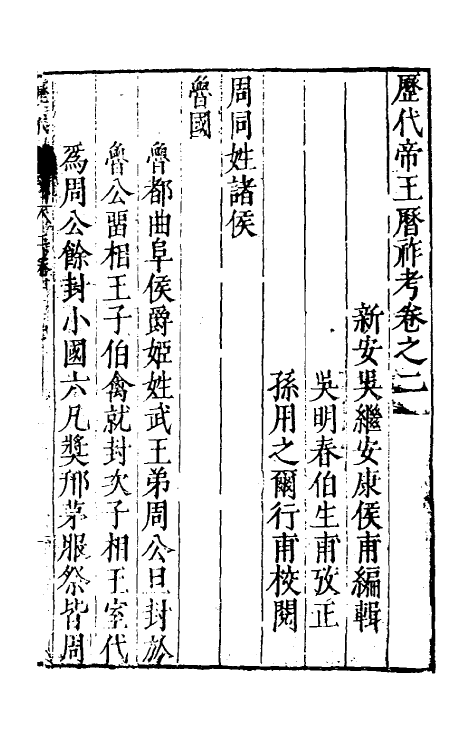 歷代帝王曆祚考卷之二
新安吳繼安康侯甫編輯
吳明春伯生甫攷正
孫用之爾行甫校閱
周同姓諸侯
魯國
魯都曲阜侯爵姬姓武王弟周公旦封於
魯公畱相王子伯禽就封次子相王室代
爲周公餘封小國六凡奬邢茅服祭皆周